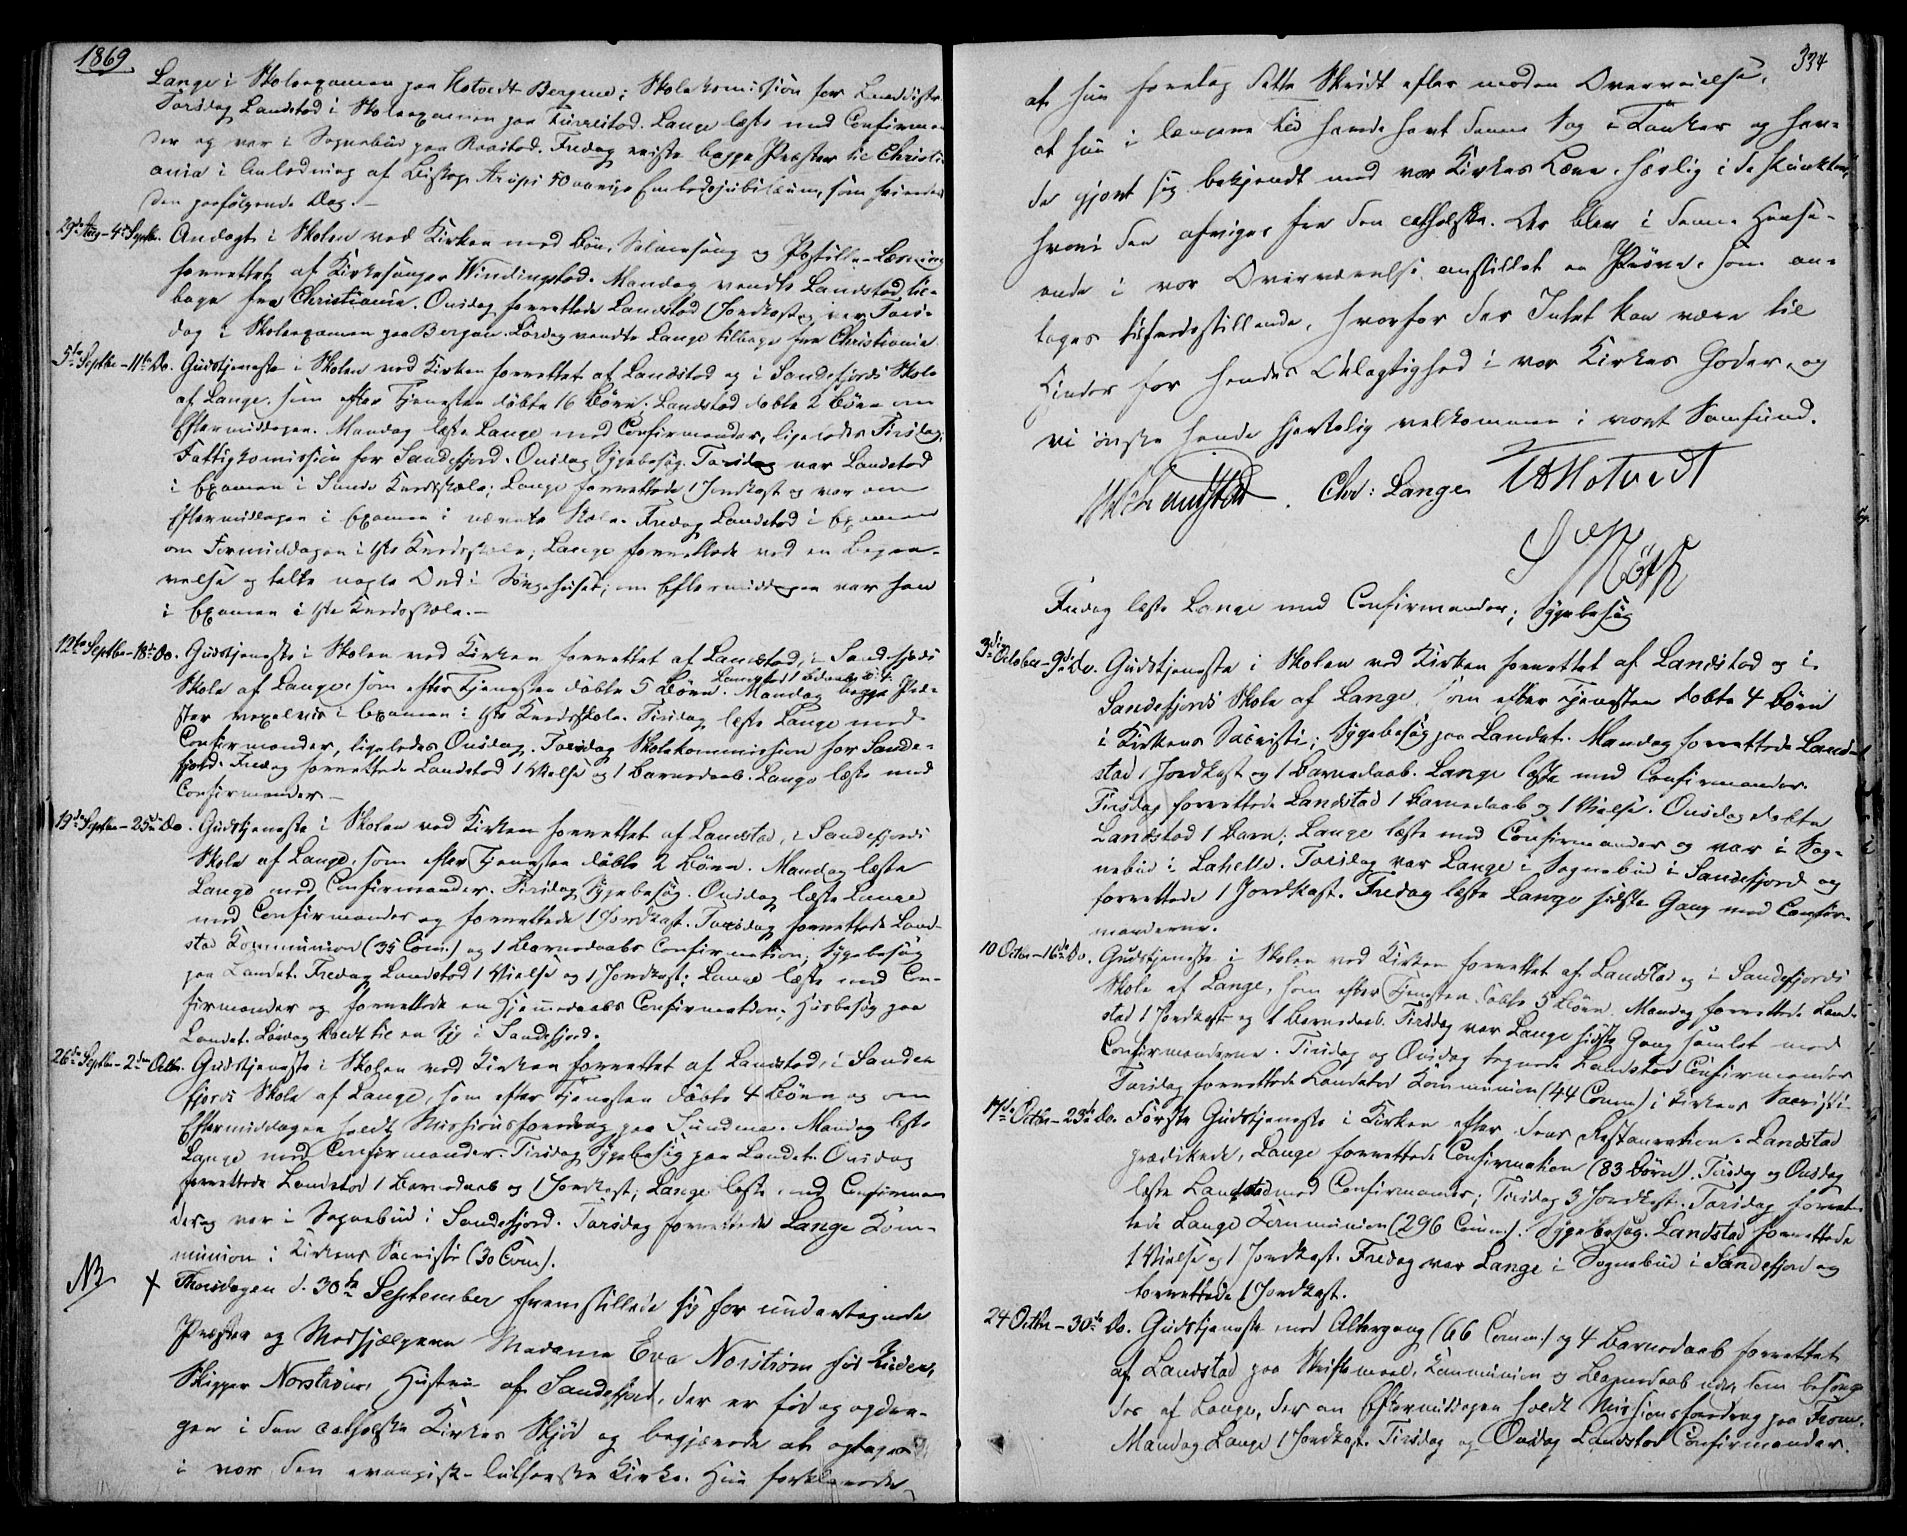 1869
Lange i Skoleexamen paa Hotvedt Bergene; Skolekomission for
Torsdag Landstad i Skoleexamen paa Furustad. Lange læste med Confirman
der og var i Sognebud paa Raastad. Fredag reiste begge Præster til Christi
ania i Anledning af Biskop Arups 50 aarige Embedsjubilæum, som
den paafølgende Dag.
29de Aug - 4de Septbr. Andagt i Skolen ved Kirken med Bøn, Salmesang og Postille-Læsning
forrettet af Kirkesanger Windingstad. Mandag vendte Landstad til-
bage fra Christiania. Onsdag forrettede Landstad 1 Jordkast og var Tors-
dag i Skoleexamen paa Bergan. Lørdag vendte Lange tilbage fra Christiania
5te Septbr - 11te Do. Gudstjeneste i Skolen ved Kirken forrettet af Landstad og i Sandefjords Skole
af Lange, som efter Tjenesten døbte 16 Børn; Landstad døbte 2 Børn om
Eftermiddagen. Mandag læste Lange med Confirmander, ligeledes Tirsdag;
Fattigkomission for Sandefjord. Onsdag Sygebesøg. Torsdag var Landstad
i Examen i Sande Kredsskole; Lange forrettede 1 Jordkast og var om
Eftermiddagen i Examen i nævnte Skole. Fredag Landstad i Examen
om Formiddagen i Kredsskole; Lange forrettede ved en Begra-
velse og talte nogle Ord i Sørgehuset; om Eftermiddagen var han
i Examen i Kredsskole.
12te Septbr - 18de Do. Gudstjeneste i Skolen ved Kirken forrettet af Landstad, i Sandefjords
Skole af Lange, som efter Tjenesten døbte 5 Børn. Mandag begge Præ-
ster vexelvis i Examen i Kredsskole. Tirsdag læste Lange med
Confirmander, ligeledes Onsdag. Torsdag Skolekommission for Sande-
fjord. Fredag forrettede Landstad 1 Vielse og 1 Barnedaab. Lange læste med
Confirmander
19de Septbr - 25de Do. Gudstjeneste i Skolen ved Kirken forrettet af Landstad, i Sandefjords
Skole af Lange, som efter Tjenesten døbte 2 Børn. Mandag læste
Lange med Confirmander. Tirsdag Sygebesøg. Onsdag læste Lange
med Confirmander og forrettede 1 Jordkast. Torsdag forrettede Land-
stad Kommunion (35 Com.) og 1 Barnedaabs Confirmation; Sygebesøg
paa Landet. Fredag Landstad 1 Vielse og 1 Jordkast; Lange læste med Con-
firmander og forrettede en Hjemmedaabs Confirmation; Husbesøg paa
Landet. Lørdag kaldt til en Syg i Sandefjord.
26de Septbr - 2den Octbr. Gudstjeneste i Skolen ved Kirken forrettet af Landstad, i Sande
fjords Skole af Lange, som efter Tjenesten døbte 4 Børn og om
Eftermiddagen holdt Missionsforedrag paa Sundene. Mandag læste
Lange med Confirmander. Tirsdag Sygebesøg paa Landet. Onsdag
forrettede Landstad 1 Barnedaab og 1 Jordkast; Lange læste med Confirman
der og var i Sognebud i Sandefjord. Torsdag forrettede Lange Kom-
munion i Kirkens Sacristi (30 Com).
NB + Thorsdagen d. 30te September fremstillede sig for undertegnede
Præster og Medhjælpere Madame Eva Norström fød
Skipper Norströms Hustru af Sandefjord, der er fød og opdra-
gen i den catholske Kirkes Skjød og begjærede at optages
i vor den evangelisk-lutherske Kirke. Hun forklarede
334
at hun foretog dette Skridt efter moden Overveielse,
at hun i længere Tid havde havt denne Sag i Tanker og hav-
de gjort sig bekjendt med vor Kirkes Lære, særlig i de Punkter,
hvori den afviger fra den catholske. Der blev i denne Hense-
ende i vor Overværelse anstillet en Prøve, som an-
toges tilfredsstillende, hvorfor der Intet kan være til
Hinder for hendes Delagtighed i vor Kirkes Goder, og
vi ønske hende hjertelig velkommen i vort Samfund.
MBLandstad. Chr: Lange Hotvedt
Fredag læste Lange med Confirmander; Sygebesøg
3die October - 9de do. Gudstjeneste i Skolen ved Kirken forrettet af Landstad og i
Sandefjords Skole af Lange, som efter Tjenesten døbte 4 Børn
i Kirkens Sacristi; Sygebesøg paa Landet. Mandag forrettede Land-
stad 1 Jordkast og 1 Barnedaab. Lange læste med Confirmander.
Tirsdag forrettede Landstad 1 Barnedaab og 1 Vielse. Onsdag døbte
Landstad 1 Barn; Lange læste med Confirmander og var i Sog-
nebud i Lahelle. Torsdag var Lange i Sognebud i Sandefjord og
forrettede 1 Jordkast. Fredag læste Lange sidste Gang med Confir-
manderne.
10 Octbr - 16de Do. Gudstjeneste i Skolen ved Kirken forrettet af Landstad og i Sandefjords
Skole af Lange, som efter Tjenesten døbte 5 Børn. Mandag forrettede Land-
stad 1 Jordkast og 1 Barnedaab. Tirsdag var Lange sidste Gang samlet med
Confirmanderne. Tirsdag og Onsdag tegnede Landstad Confirmander
Torsdag forrettede Landstad Kommunion (44 Comm) i Kirkens Sacristi
17de Octbr - 23de Do. Første Gudstjeneste i Kirken efter dens Restauration. Landstad
prædikede, Lange forrettede Confirmation (83 Børn). Tirsdag og Onsdag
læste Landstad med Confirmander; Tirsdag 3 Jordkast. Torsdag forret-
tede Lange Kommunion (296 Comm). Sygebesøg. Landstad forrettede
1 Vielse og 1 Jordkast. Fredag var Lange i Sognebud i Sandefjord og
forrettede 1 Jordkast.
24 Octbr - 30te Do. Gudstjeneste med Altergang (66 Comm.) og 4 Barnedaab forrettet
af Landstad paa Skriftemaal, Kommunion og Barnedaab nær, som besørge-
des af Lange, der om Eftermiddagen holdt Missionsforedrag paa
Mandag Lange 1 Jordkast. Tirsdag og Onsdag Landstad Confirmander.